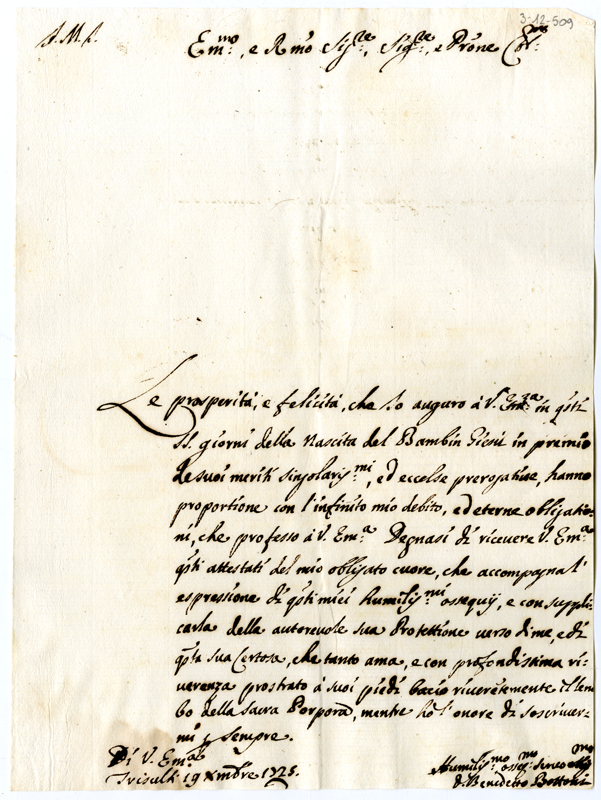 3-12-509
J.M.J.
Em.mo, e Rmo Sig.re, Sig.re, e Prone Col.mo
Le prosperità, e felicità, che Io auguro à V. Em.za in q̃sti
SS. giorni della Nascita del Bambin Giesù in premio
de suoi meriti singolariss.mi, ed eccelse prerogative, hanno
proportione con l'infinito mio debito, ed eterne obligatio-
ni, che professo à V. Em.a Degnasi di ricevere V. Em.a
q̃sti attestati del mio obligato cuore, che accompagna l'
espressione di q̃sti miei humiliss.mi ossequij, e con suppli-
carla della autorevole sua Protettione verso di me, e di
q̃sta sua Certosa, che tanto ama, e con profondissima ri-
verenza prostrato à suoi piedi bacio riverẽtemente il lem-
bo della sacra Porpora, mentre hò l'onore di soscriver-
mi p sempre.
Di V. Em.za
Trisulti 19 Xmbre 1725.
Humiliss.mo osseq.mo
D. Benedetto Bottoni